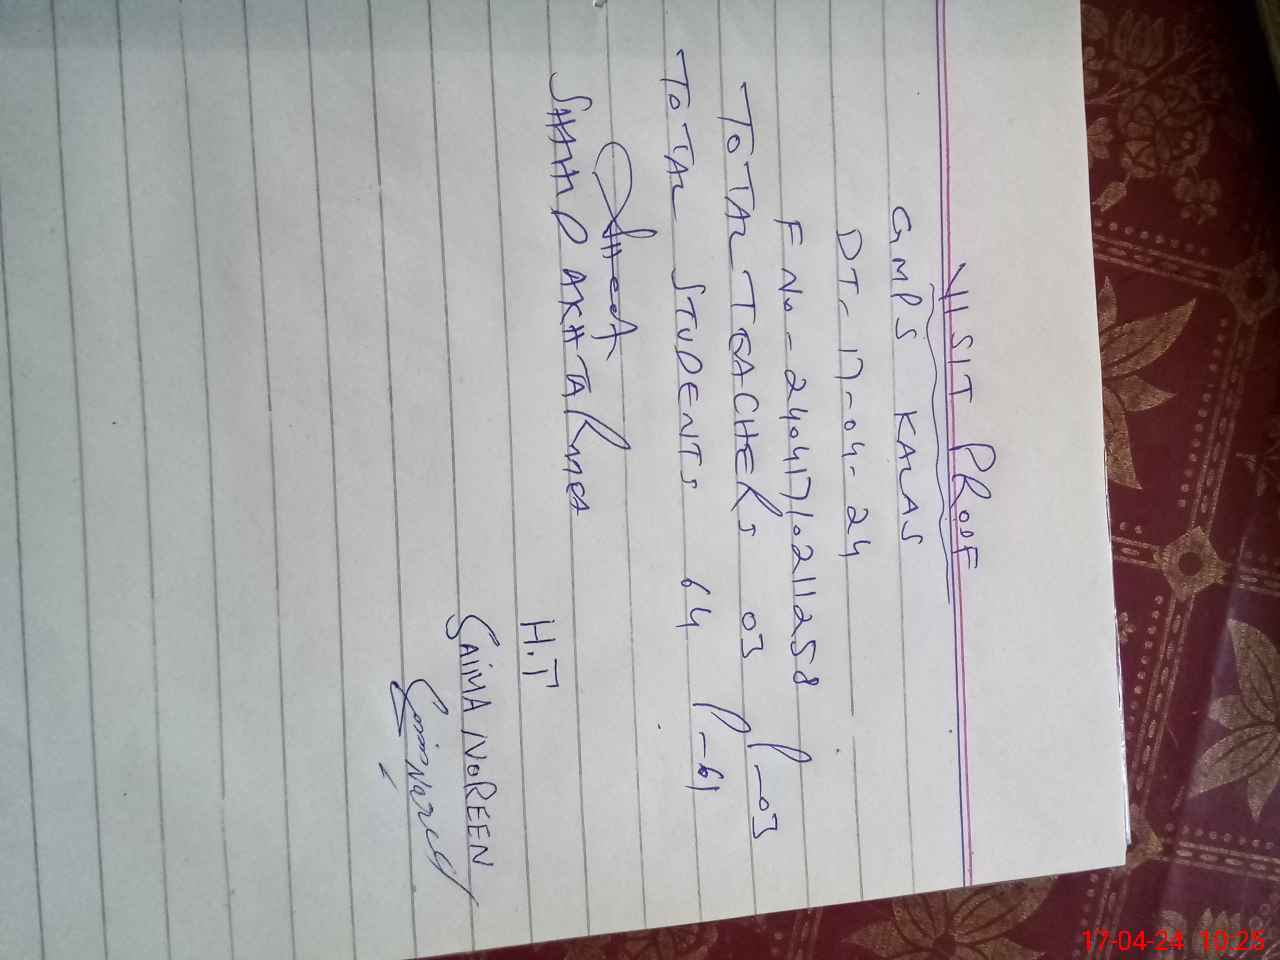 VISIT PROOF
GMPS KALAS
DT- 17-04-24
F No - 240417/0211258
TOTAL TEACHERS 03 P-03
TOTAL STUDENTS 64 P-61
SHAHID AKHTAR
H.T
SAIMA NOREEN
17-04-24 10:25